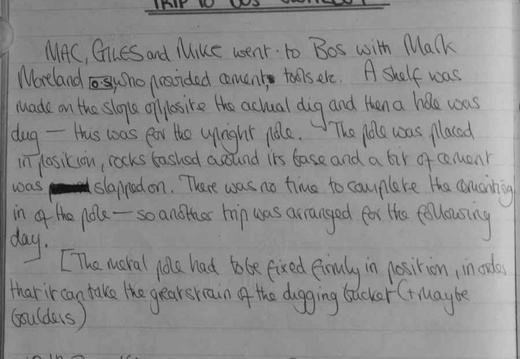 TRIP TO BOS
MAC, GILES and MIKE went to Bos with Mark
Moreland OS, who provided cement, tools etc. A shelf was
made on the slope opposite the actual dig and then a hole was
dug — this was for the upright pole. The pole was placed
in position, rocks bashed around its base and a bit of cement
was slapped on. There was no time to complete the cementing
in of the pole — so another trip was arranged for the following
day.
[The metal pole had to be fixed firmly in position, in order
that it can take the great strain of the digging bucket (+ maybe
boulders)